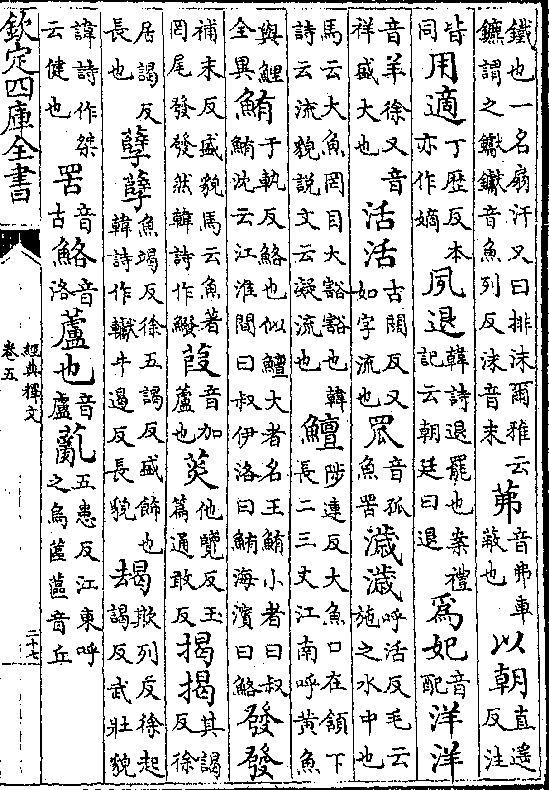 鐵也一名扇汗又曰排沫爾雅云鑣謂之钀钀音魚列反沫音末茀音弗車蔽也以朝直遥反注
皆同用適丁歴反本亦作嫡夙退韓詩退罷也案禮記云朝廷曰退為妃音配洋洋
音羊徐又音祥盛大也活活古闊反又如字流也罛音孤魚罟濊濊呼活反毛云施之水中也
馬云大魚罔目大豁豁也韓詩云流貌説文云凝流也鱣陟連反大魚口在頷下長二三丈江南呼黄魚
與鯉全異鮪于軌反鮥也似鱣大者名王鮪小者曰叔鮪沈云江淮間曰叔伊洛曰鮪海濱曰鮥發發
補末反盛貌馬云魚著罔尾發發然韓詩作鱍葭音加蘆也菼他覽反玉篇通敢反揭揭其謁反徐
居謁反長也孽孽魚竭反徐五謁反盛飾也韓詩作牛遏反長貌朅欺列反徐起謁反武壯貌
韓詩作桀云健也罟音古鮥音洛蘆也音盧薍五患反江東呼之烏蓲蓲音丘
欽定四庫全書
經典釋文
卷五
二十七